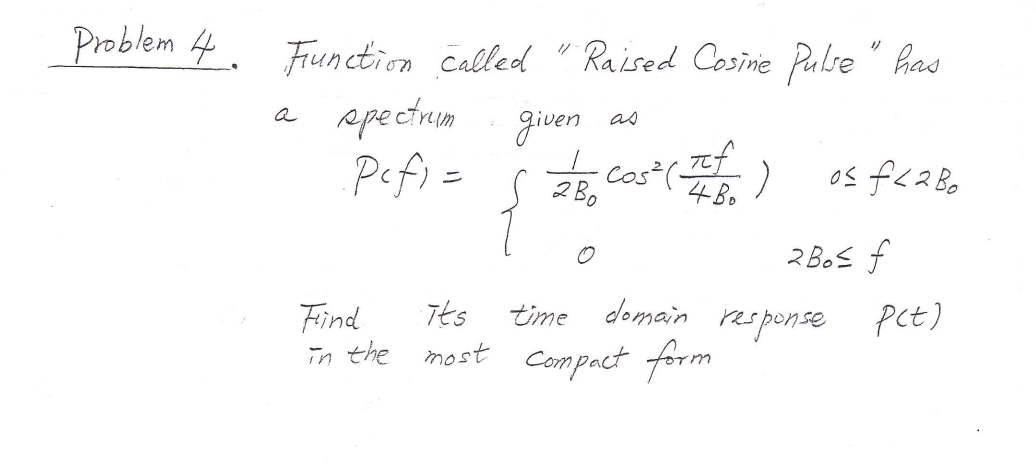 Problem 4. Function called "Raised Cosine Pulse" has
a spectrum given as
P(f) = { 1/2B₀ cos²(πf/4B₀) 0≤ f<2B₀
0 2B₀≤ f
Find its time domain response p(t)
in the most compact form